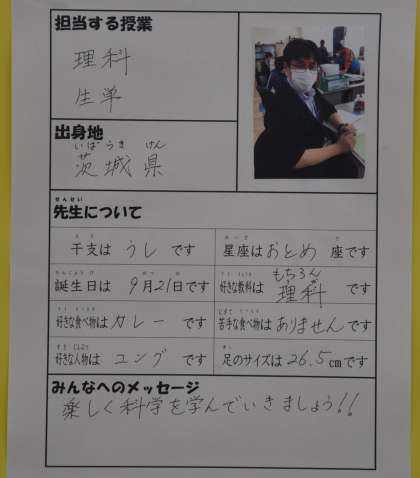 担当する授業
理科
生単
出身地
いばらき けん
茨城県
せんせい
先生について
干支は うし です
星座は おとめ 座です
誕生日は 9月21日です
好きな教科は もちろん 理科 です
好きな食べ物は カレー です
苦手な食べ物は ありません です
好きな人物は ユング です
足のサイズは 26.5 cmです
みんなへのメッセージ
楽しく科学を学んでいきましょう!!